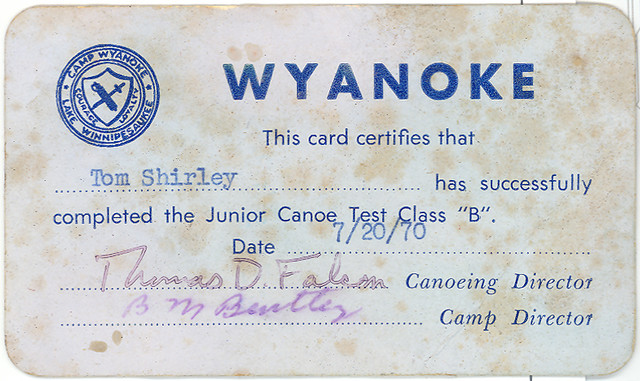 CAMP WYANOKE
COURAGE LOYALTY
LAKE WINNIPESAUKEE
WYANOKE
This card certifies that
Tom Shirley has successfully
completed the Junior Canoe Test Class "B".
Date 7/20/70
Thomas D. Canoeing Director
B M Bentley Camp Director